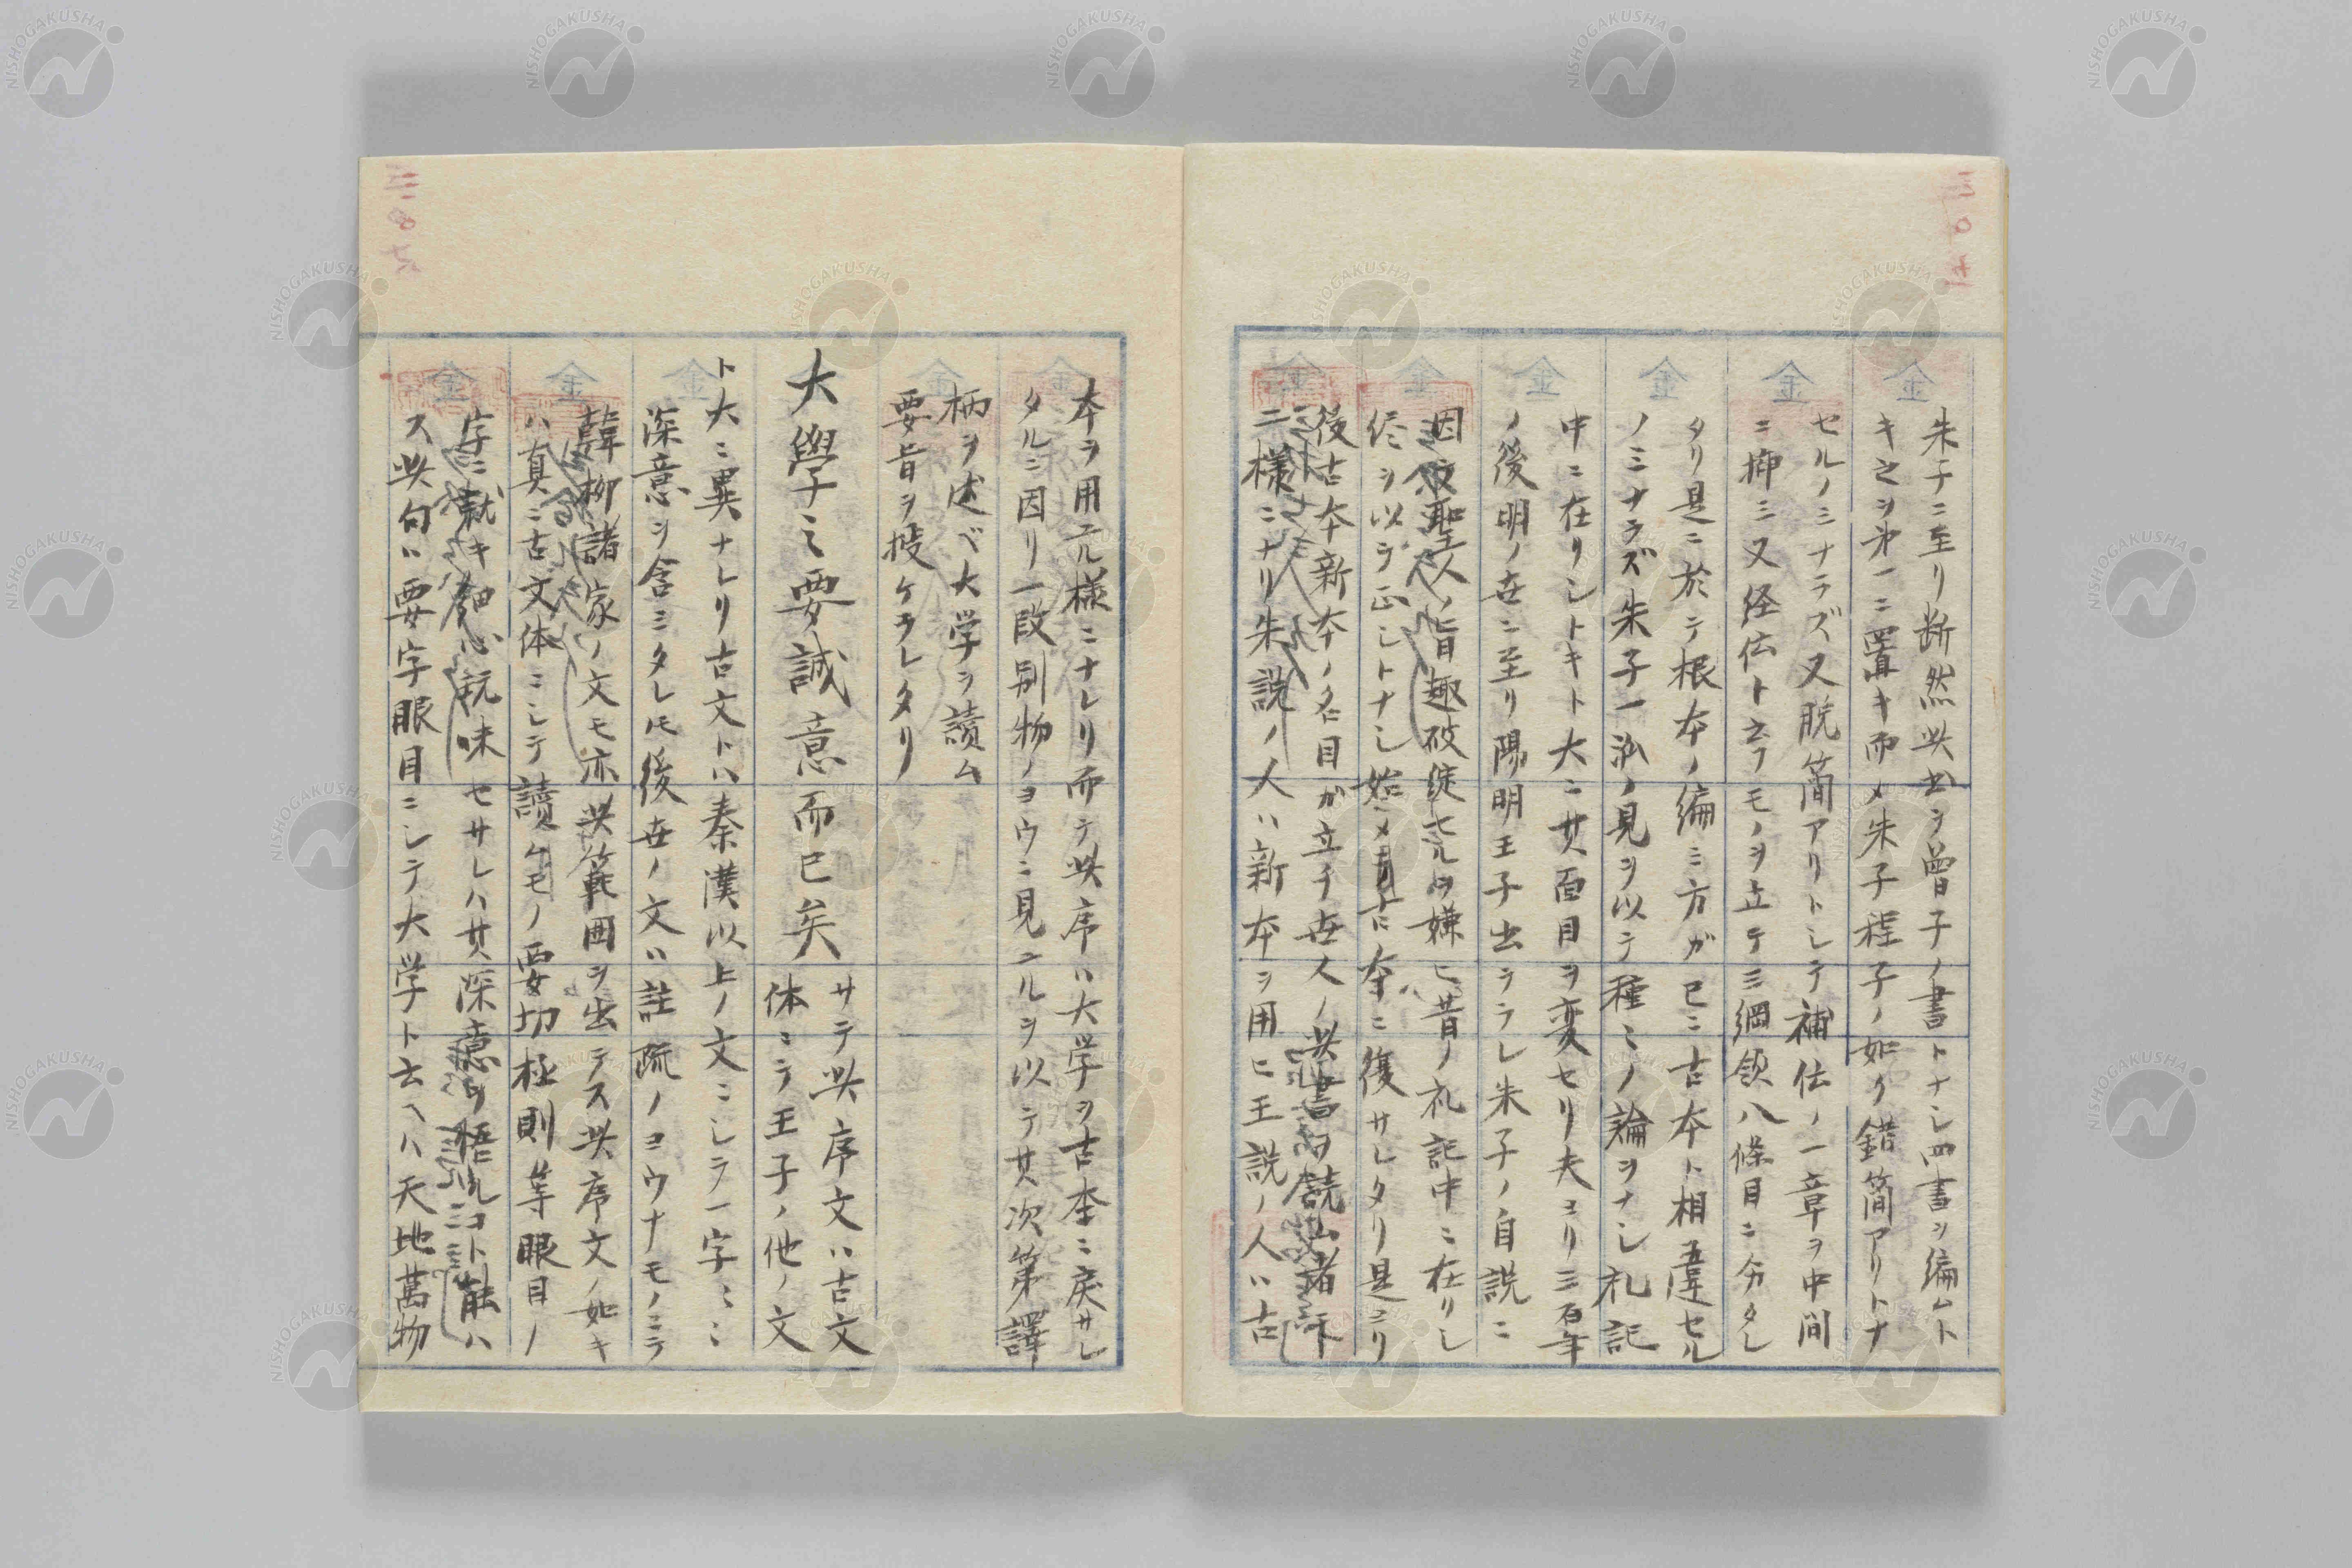 朱子ニ至リ断然此書ヲ曽子ノ書トナシ四書ヲ編ムト
キ之ヲ第一ニ置キ而メ朱子程子ノ如ク錯簡アリトナ
セルノミナラズ又脱簡アリトシテ補伝ノ一章ヲ中間
ニ挿ミ又経伝ト云フモノヲ立テ三綱領八條目ニ分タレ
タリ是ニ於テ根本ノ編ミ方ガ已ニ古本ト相違セル
ノミナラズ朱子一流ノ見ヲ以テ種ミノ論ヲナシ礼記
中ニ在リシトキト大ニ其面目ヲ変セリ夫ヨリ三百年
ノ後明ノ世ニ至リ陽明王子出ラレ朱子ノ自説ニ
因テ聖人ノ旨趣破綻セルヲ嫌ヒ昔ノ礼記中ニ在リシ
侭ヲ以テ正シトナシ始メテ古ノ本ニ復サレタリ是ヨリ
後古本新本ノ名目ガ立チ世人ノ此書ヲ読ム者
二様ニナリ朱説ノ人ハ新本ヲ用ヒ王説ノ人ハ古
本ヲ用ユル様ニナレリ而テ此序ハ大学ヲ古本ニ戻サレ
タルニ因リ一段別物ノヨウニ見ユルヲ以テ其次第譯
柄ヲ述ベ大学ヲ讀ム
要旨ヲ授ケラレタリ
大學之要誠意而已矣
サテ此序文ハ古文
体ニテ王子ノ他ノ文
ト大ニ異ナレリ古文トハ秦漢以上ノ文ニシテ一字ミミ
深意ヲ含ミタレ𪜈後世ノ文ハ註疏ノヨウナモノニテ
韓柳諸家ノ文モ亦此範囲ヲ出テス此序文ノ如キ
ハ真ニ古文体ニシテ讀ムモノ要切極則等眼目ノ
字ニ就キ細心玩味セサレハ其深意ヲ悟ルコト能ハ
ス此句ハ要字眼目ニシテ大学ト云ヘハ天地萬物
金
NISHOGAKUSHA